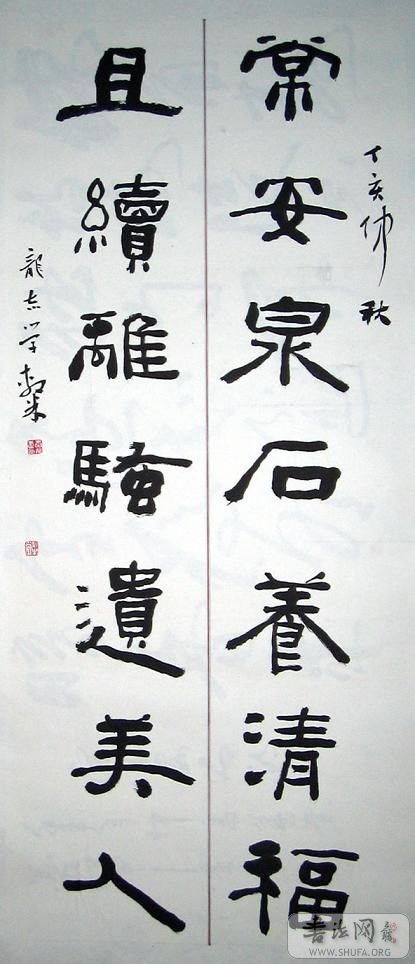 常安泉石養清福
丁亥仲秋
且續離騷遺美人
龍志學敬錄
书法网
WWW.SHUFA.ORG